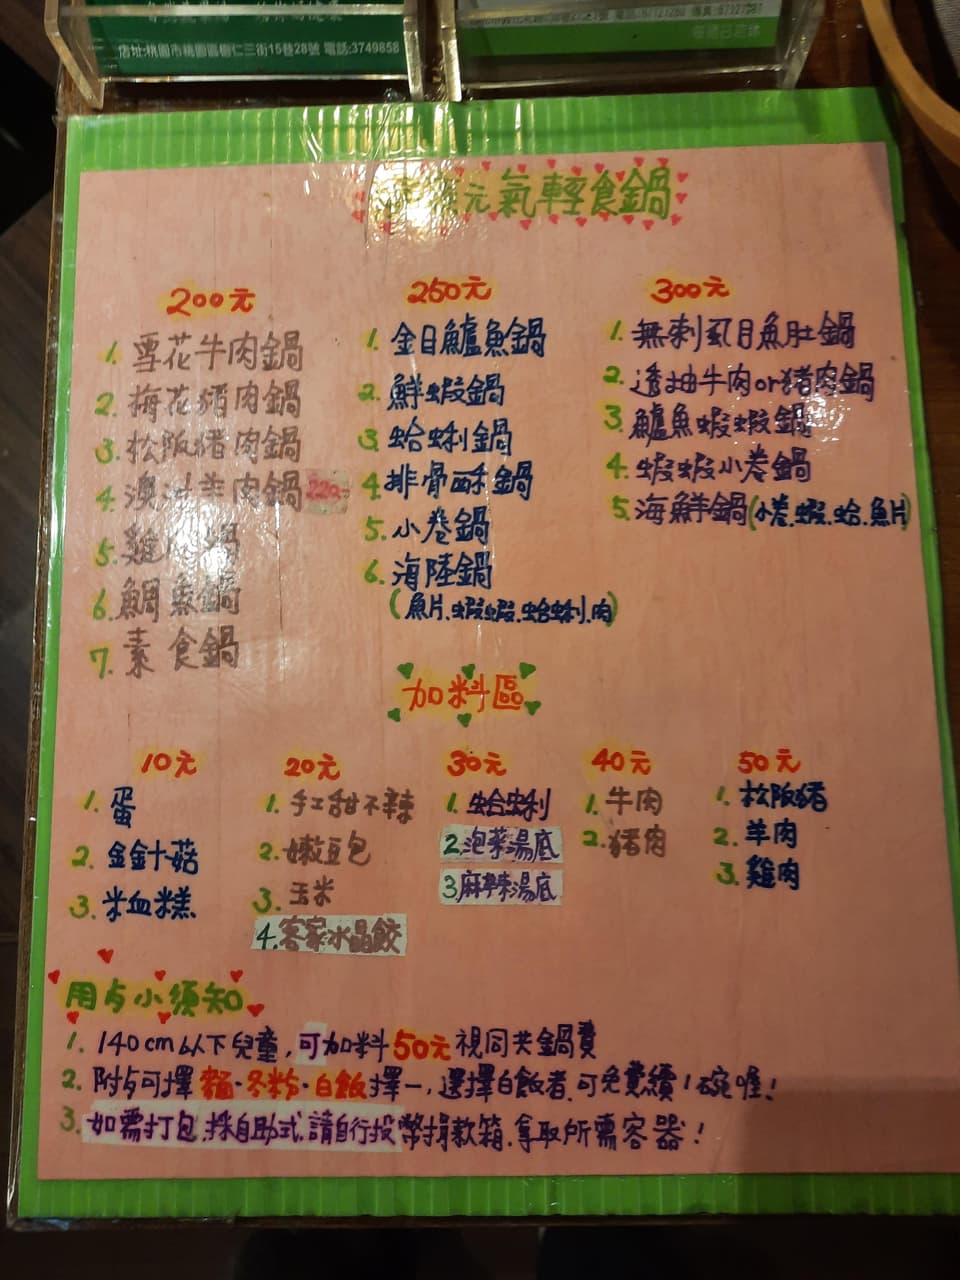 店址:桃園市桃園區樹仁三街15巷28號 電話:3749858
元氣輕食鍋
200元
1. 雪花牛肉鍋
2. 梅花豬肉鍋
3. 松阪豬肉鍋
4. 澳洲羊肉鍋 220
5. 雞肉鍋
6. 鯛魚鍋
7. 素食鍋
260元
1. 金目鱸魚鍋
2. 鮮蝦鍋
3. 蛤蜊鍋
4. 排骨酥鍋
5. 小卷鍋
6. 海陸鍋
(魚片.蝦蝦.蛤蜊.肉)
300元
1. 無刺虱目魚肚鍋
2. 透抽牛肉or豬肉鍋
3. 鱸魚蝦蝦鍋
4. 蝦蝦小卷鍋
5. 海鮮鍋(小卷.蝦.蛤.魚片)
加料區
10元
1. 蛋
2. 金針菇
3. 米血糕
20元
1. 手工甜不辣
2. 嫩豆包
3. 玉米
4. 客家水晶餃
30元
1. 蛤蜊
2. 泡菜湯底
3. 麻辣湯底
40元
1. 牛肉
2. 豬肉
50元
1. 松阪豬
2. 羊肉
3. 雞肉
用歺小須知
1. 140cm以下兒童,可加料50元視同共鍋費
2. 附歺可擇 麵·冬粉·白飯擇一,選擇白飯者.可免費續1碗喔!
3. 如需打包.採自助式.請自行投幣捐款箱.拿取所需容器!